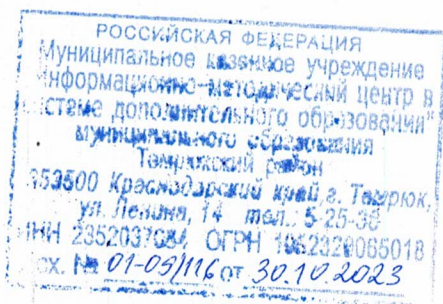 РОССИЙСКАЯ ФЕДЕРАЦИЯ
Муниципальное казенное учреждение
Информационно-методический центр в
системе дополнительного образования"
муниципального образования
Темрюкский район
353500 Краснодарский край, г. Темрюк,
ул. Ленина, 14 тел. 5-25-36
ИНН 2352037684 ОГРН 1052329065018
Исх. № 01-05/116 от 30.10.2023